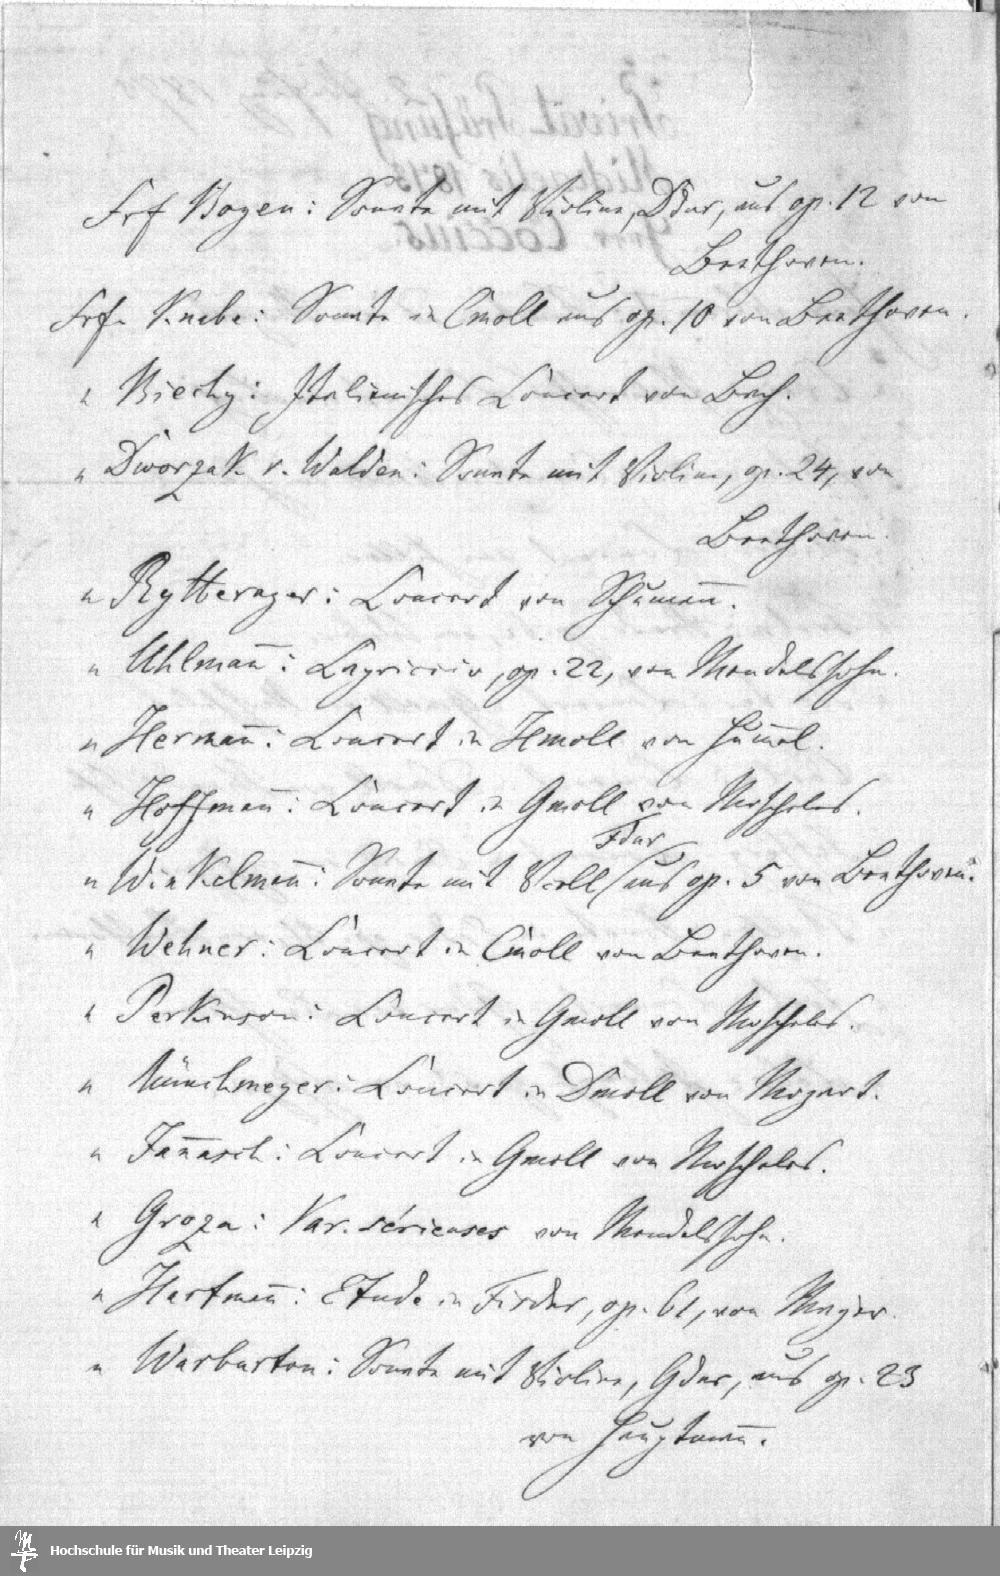 Frl. Bogen: Sonate mit Violine, Ddur, aus op. 12 von
Beethoven.
Frl. Knabe: Sonate in Cmoll aus op. 10 von Beethoven.
" Biechy: Italienisches Concert von Bach.
" Dworzak v. Walden: Sonate mit Violine, op. 24, von
Beethoven.
" Rytterager: Concert von Schumann.
" Uhlmann: Capriccio, op. 22, von Mendelssohn.
" Hermann: Concert in Hmoll von Hummel.
" Hoffmann: Concert in Gmoll von Moscheles.
Fdur
" Winkelmann: Sonate mit Vcell aus op. 5 von Beethoven.
" Wehner: Concert in Cmoll von Beethoven.
" Perkinson: Concert in Gmoll von Moscheles.
" Münchmeyer: Concert in Dmoll von Mozart.
" Jannasch: Concert in Gmoll von Moscheles.
" Groza: Var. sérieuses von Mendelssohn.
" Hartmann: Etude in Fisdur, op. 61, von Mayer.
" Warburton: Sonate mit Violine, Gdur, aus op. 23
von Hauptmann.
Hochschule für Musik und Theater Leipzig